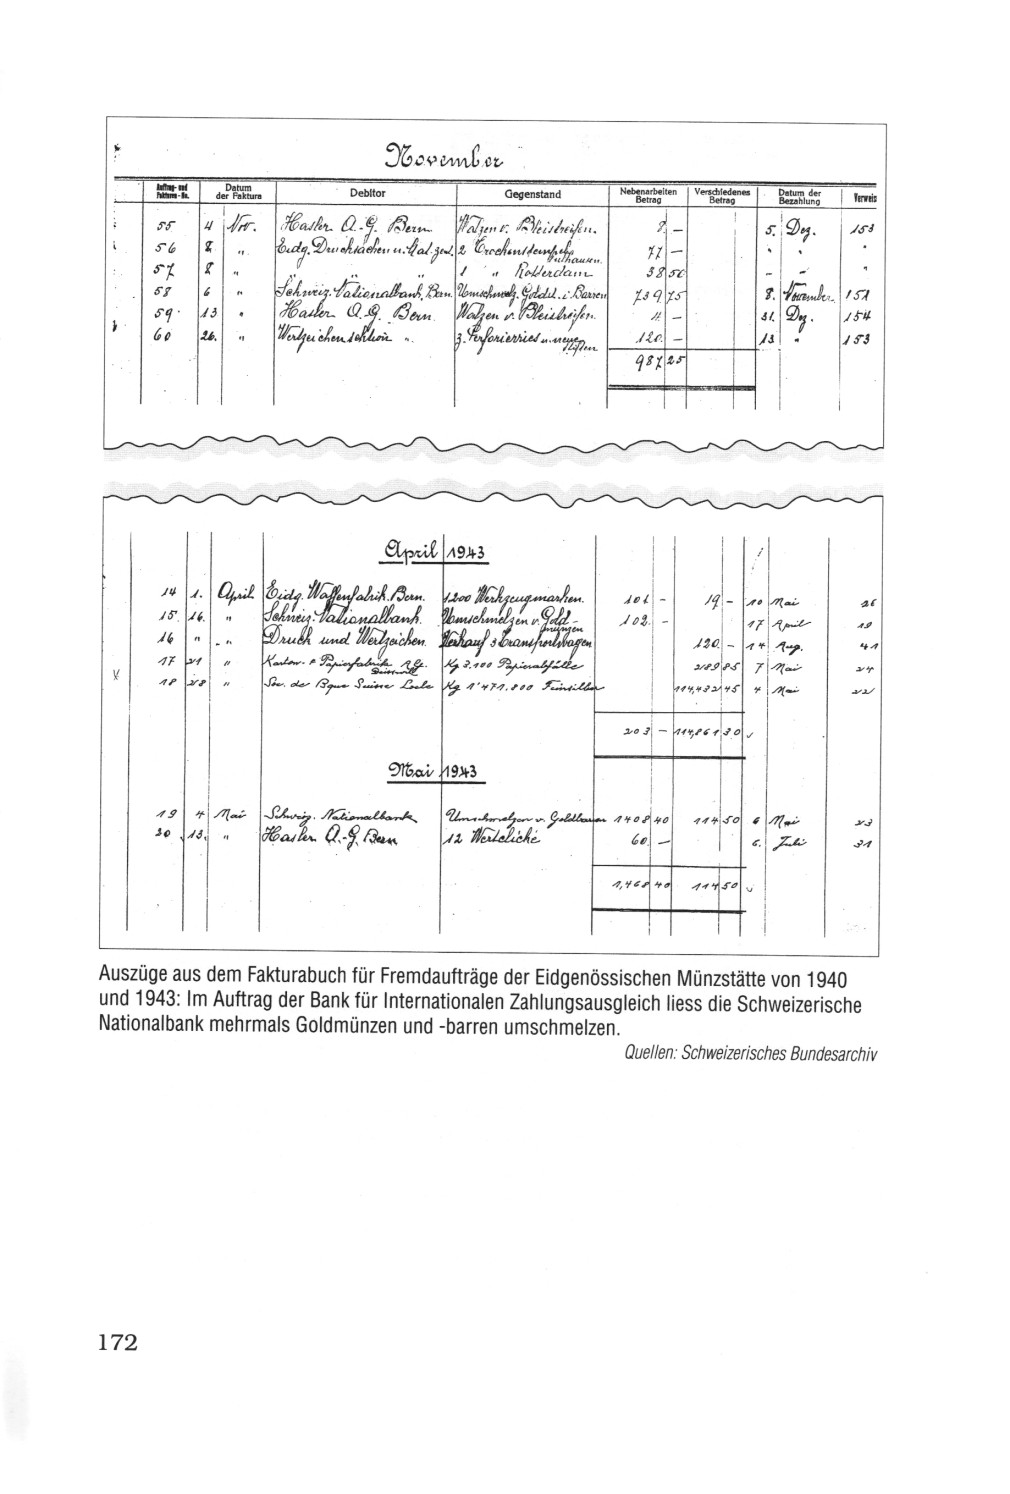 November
Auftrag- und Faktura-Nr. Datum der Faktura Debitor Gegenstand Nebenarbeiten Betrag Verschiedenes Betrag Datum der Bezahlung Verweis
55 4 Nov. Hasler A.-G. Bern Walzen v. Bleistreifen. 8. — 5. Dez. 153
56 8 " Eidg. Drucksachen u. Mat. zent. 2 Trockenstempel 77 — " " "
57 8 " " " 1 " Rotterdam 38 50 — — "
58 6 " Schweiz. Nationalbank, Bern. Umschmelz. Goldst. i. Barren 739 75 8. November 151
59 13 " Hasler A.G. Bern Walzen v. Bleistreifen. 11 — 31. Dez. 154
60 26. " Wertzeichensektion " 3. Perforierries u. neue Stiften 120. — 13 " 153
987 25
April 1943
14 1. April Eidg. Waffenfabrik. Bern. 1200 Werkzeugmarken. 101 — 19 — 10 Mai 26
15. 16. " Schweiz. Nationalbank. Umschmelzen v. Goldmünzen 102. — 17 April 19
16 " " Druck und Wertzeichen. Verkauf 3 Transportwagen 120. — 14 Aug. 41
17 21 " Karton- & Papierfabrik A.G. Kg 3.100 Papierabfälle 289 85 7 Mai 24
18 28 " Soc. de Bque Suisse Locle Kg 1'471.800 Feinsilber 114,432 45 4 Mai 22
203 — 114,861 30
Mai 1943
19 4 Mai Schweiz. Nationalbank Umschmelzen v. Goldbarren 1408 40 114 50 6 Mai 23
20 13. " Hasler A.-G. Bern 12 Wertcliché 60. — 6. Juli 31
1,468 40 114 50
Auszüge aus dem Fakturabuch für Fremdaufträge der Eidgenössischen Münzstätte von 1940
und 1943: Im Auftrag der Bank für Internationalen Zahlungsausgleich liess die Schweizerische
Nationalbank mehrmals Goldmünzen und -barren umschmelzen.
Quellen: Schweizerisches Bundesarchiv
172